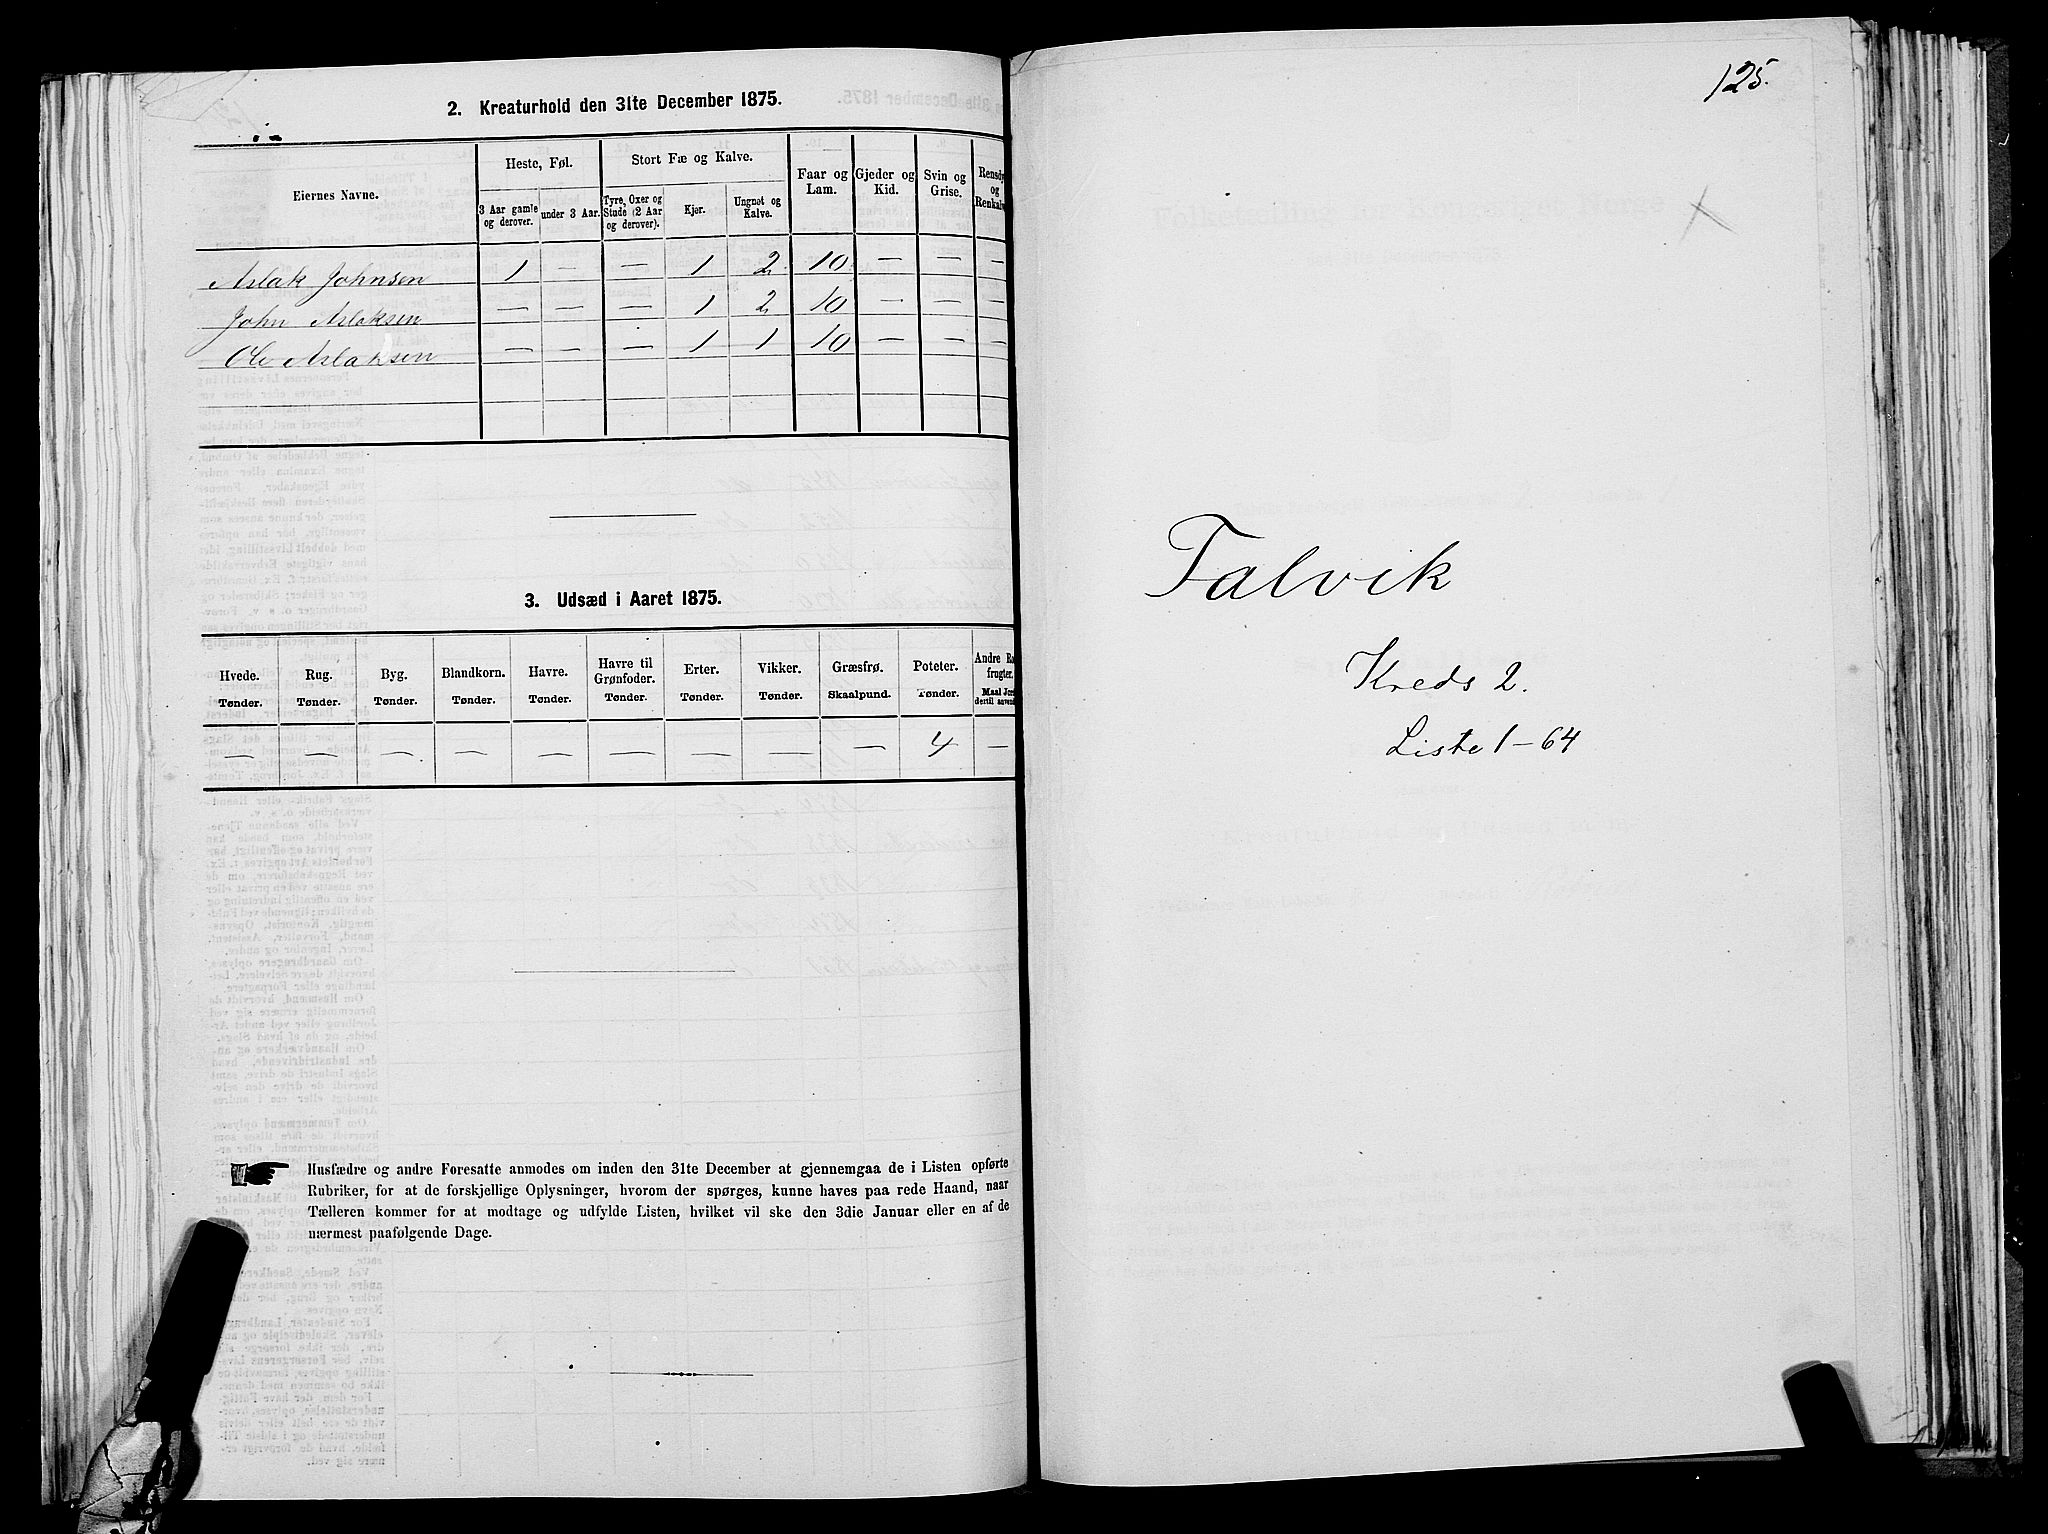 2. Kreaturhold den 31te December 1875.
Eiernes Navne. Heste, Føl. Stort Fæ og Kalve. Faar og Lam. Gjeder og Kid. Svin og Grise. Rensdy og Renkalv
3 Aar gamle og derover. under 3 Aar. Tyre, Oxer og Stude (2 Aar og derover). Kjør. Ungnøt og Kalve.
Aslak Johnsen 1 — — 1 2 10 — — —
John Aslaksen — — — 1 2 10 — — —
Ole Aslaksen — — — 1 1 10 — — —
3. Udsæd i Aaret 1875.
Hvede. Rug. Byg. Blandkorn. Havre. Havre til Grønfoder. Erter. Vikker. Græsfrø. Poteter. Andre Ro frugter.
Tønder. Tønder. Tønder. Tønder. Tønder. Tønder. Tønder. Tønder. Skaalpund. Tønder. Maal Jord dertil anvend
— — — — — — — — — 4 —
Husfædre og andre Foresatte anmodes om inden den 31te December at gjennemgaa de i Listen opførte
Rubriker, for at de forskjellige Oplysninger, hvorom der spørges, kunne haves paa rede Haand, naar
Tælleren kommer for at modtage og udfylde Listen, hvilket vil ske den 3die Januar eller en af de
nærmest paafølgende Dage.
125.
Talvik
Kreds 2.
Liste 1–64